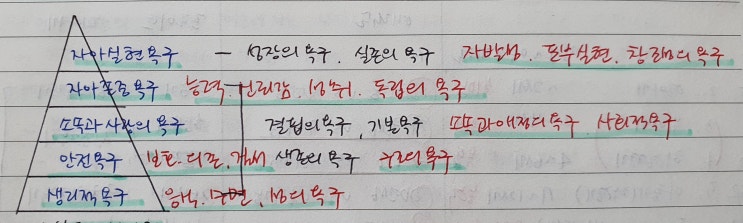 자아실현욕구 — 성장의 욕구, 실존의 욕구 자발성, 포부실현, 창조성의 욕구
자아존중욕구 능력, 신뢰감, 성취, 독립의 욕구
소속과 사랑의 욕구 결핍의욕구, 기본욕구 소속과애정의욕구 사회적욕구
안전욕구 보호·의존·질서 생존의 욕구 구조의 욕구
생리적욕구 음식, 수면, 성의 욕구